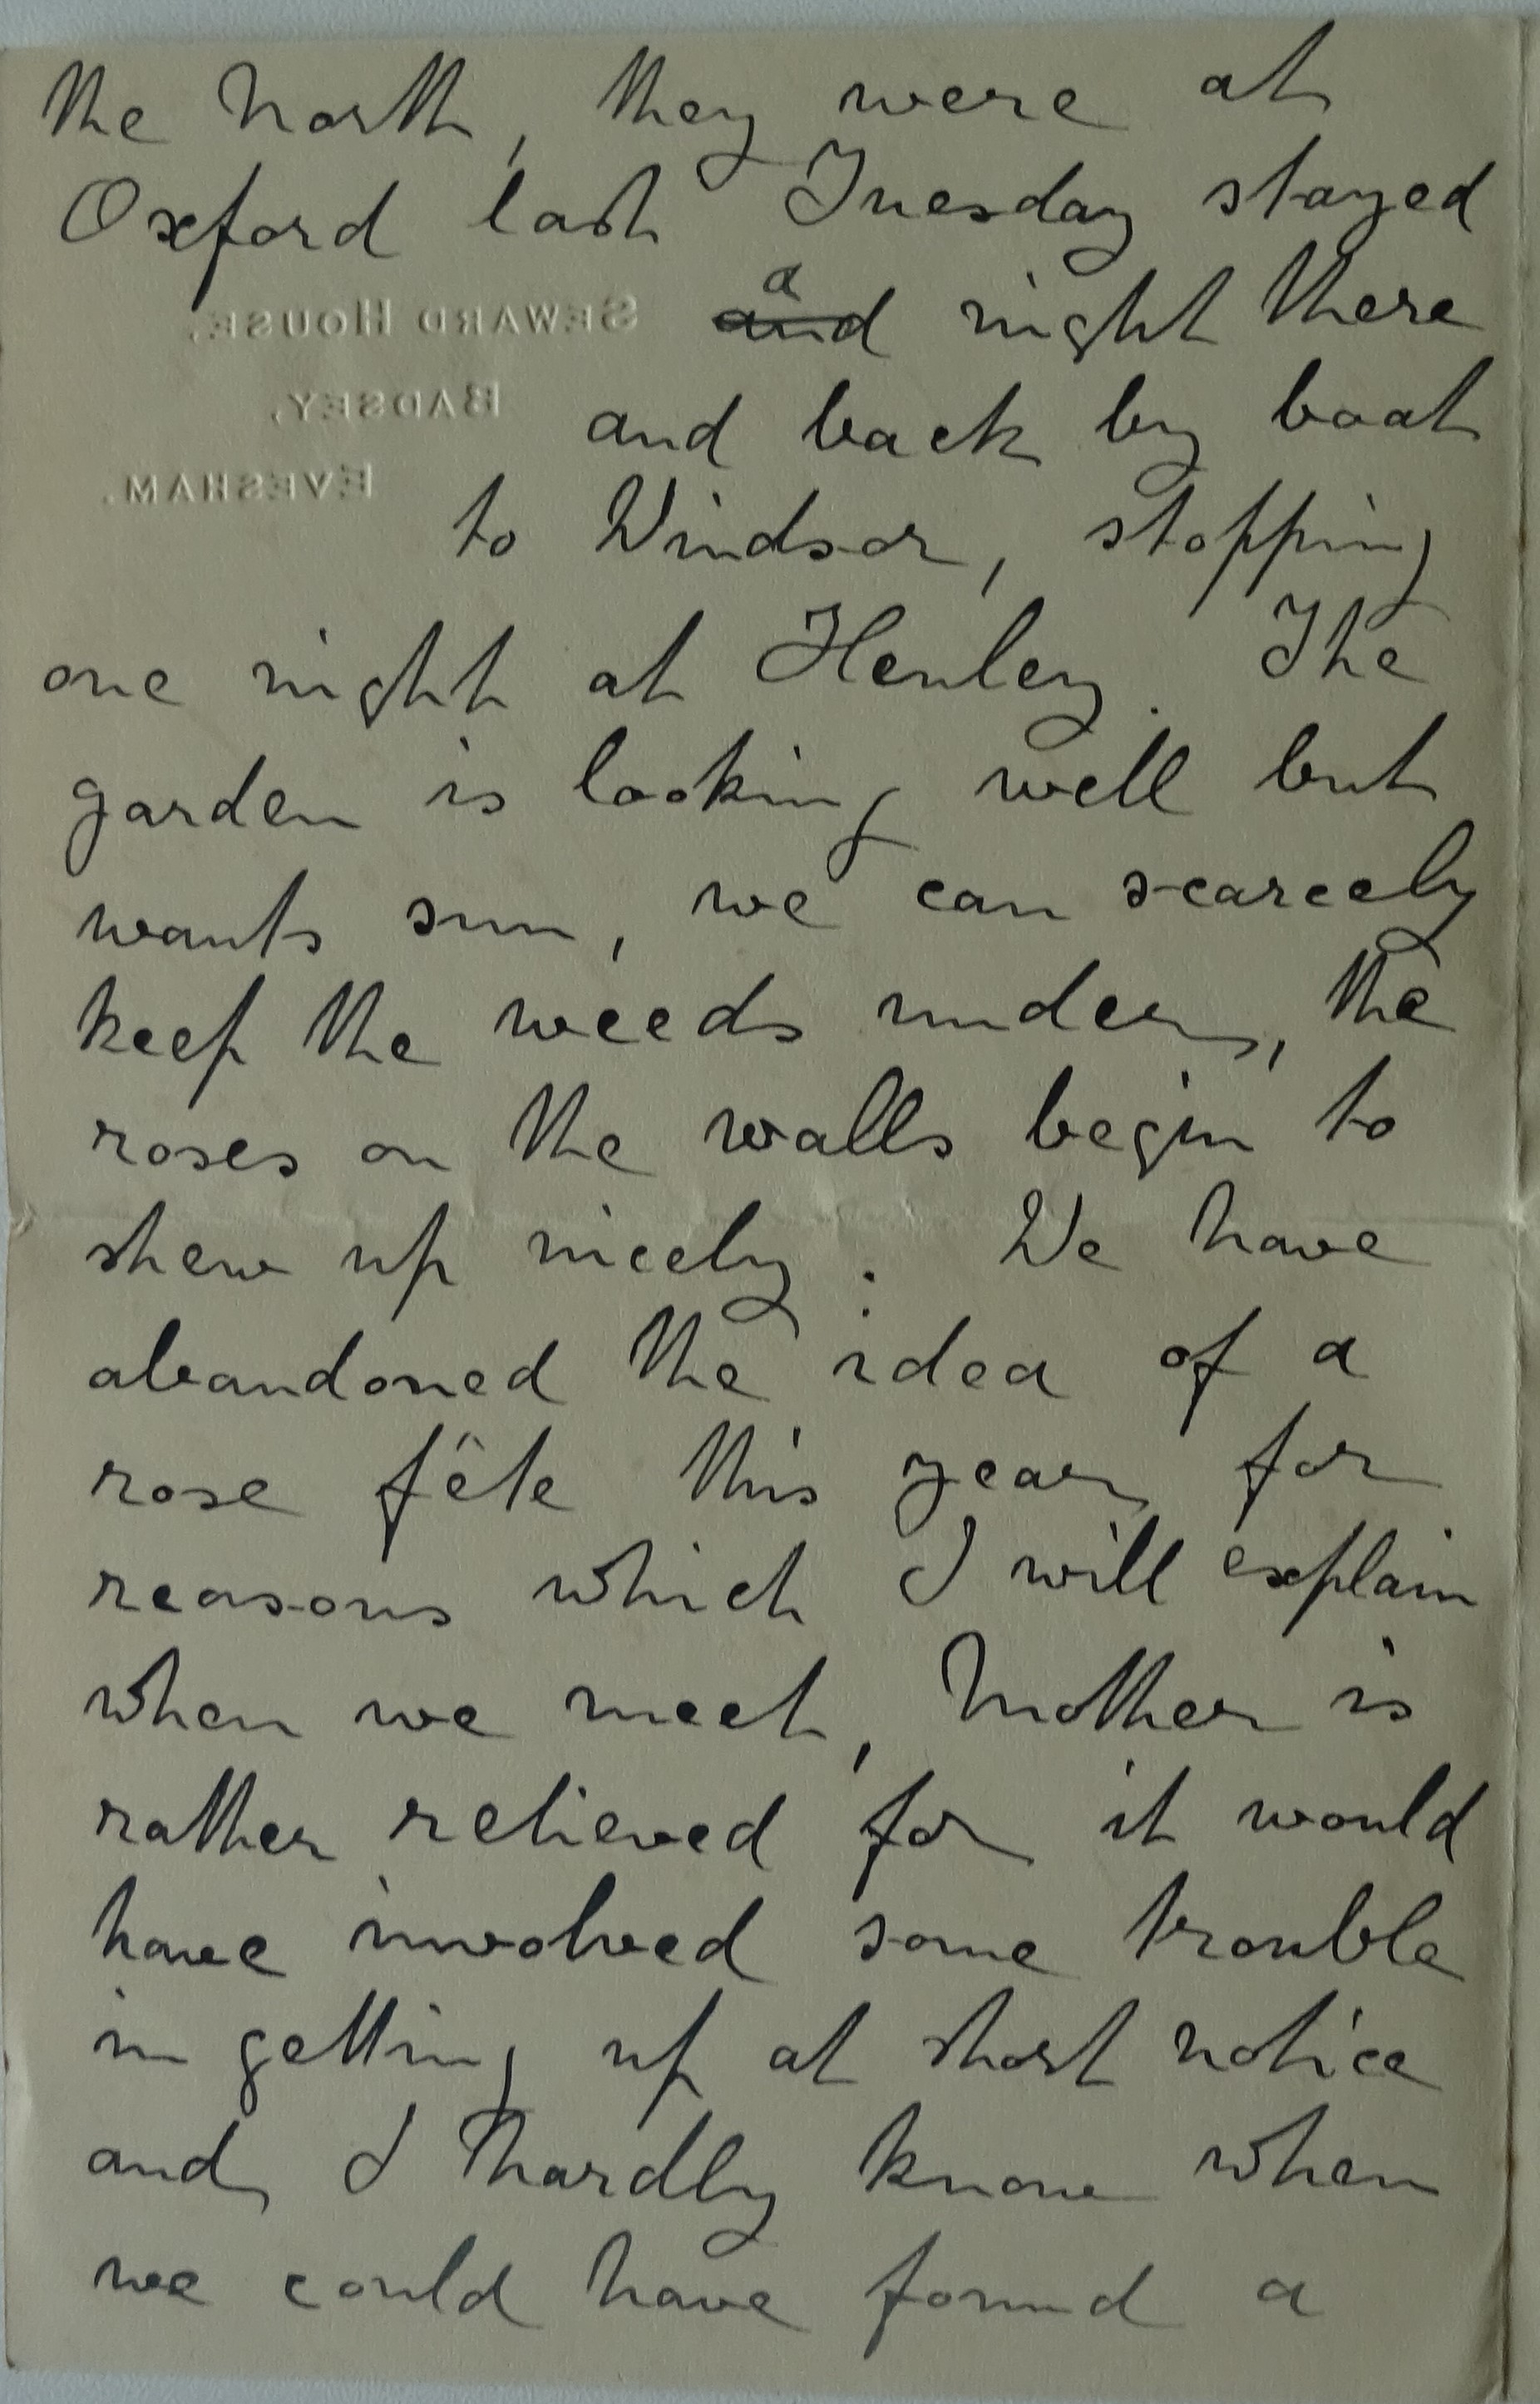 the North, they were at
Oxford last Tuesday stayed
a
and night there
and back by boat
to Windsor, stopping
one night at Henley. The
garden is looking well but
wants sun, we can scarcely
keep the weeds under, the
roses on the walls begin to
shew up nicely. We have
abandoned the idea of a
rose fête this year for
reasons which I will explain
when we meet, Mother is
rather relieved for it would
have involved some trouble
in getting up at short notice
and I hardly know when
we could have found a
SEWARD HOUSE,
BADSEY,
EVESHAM.